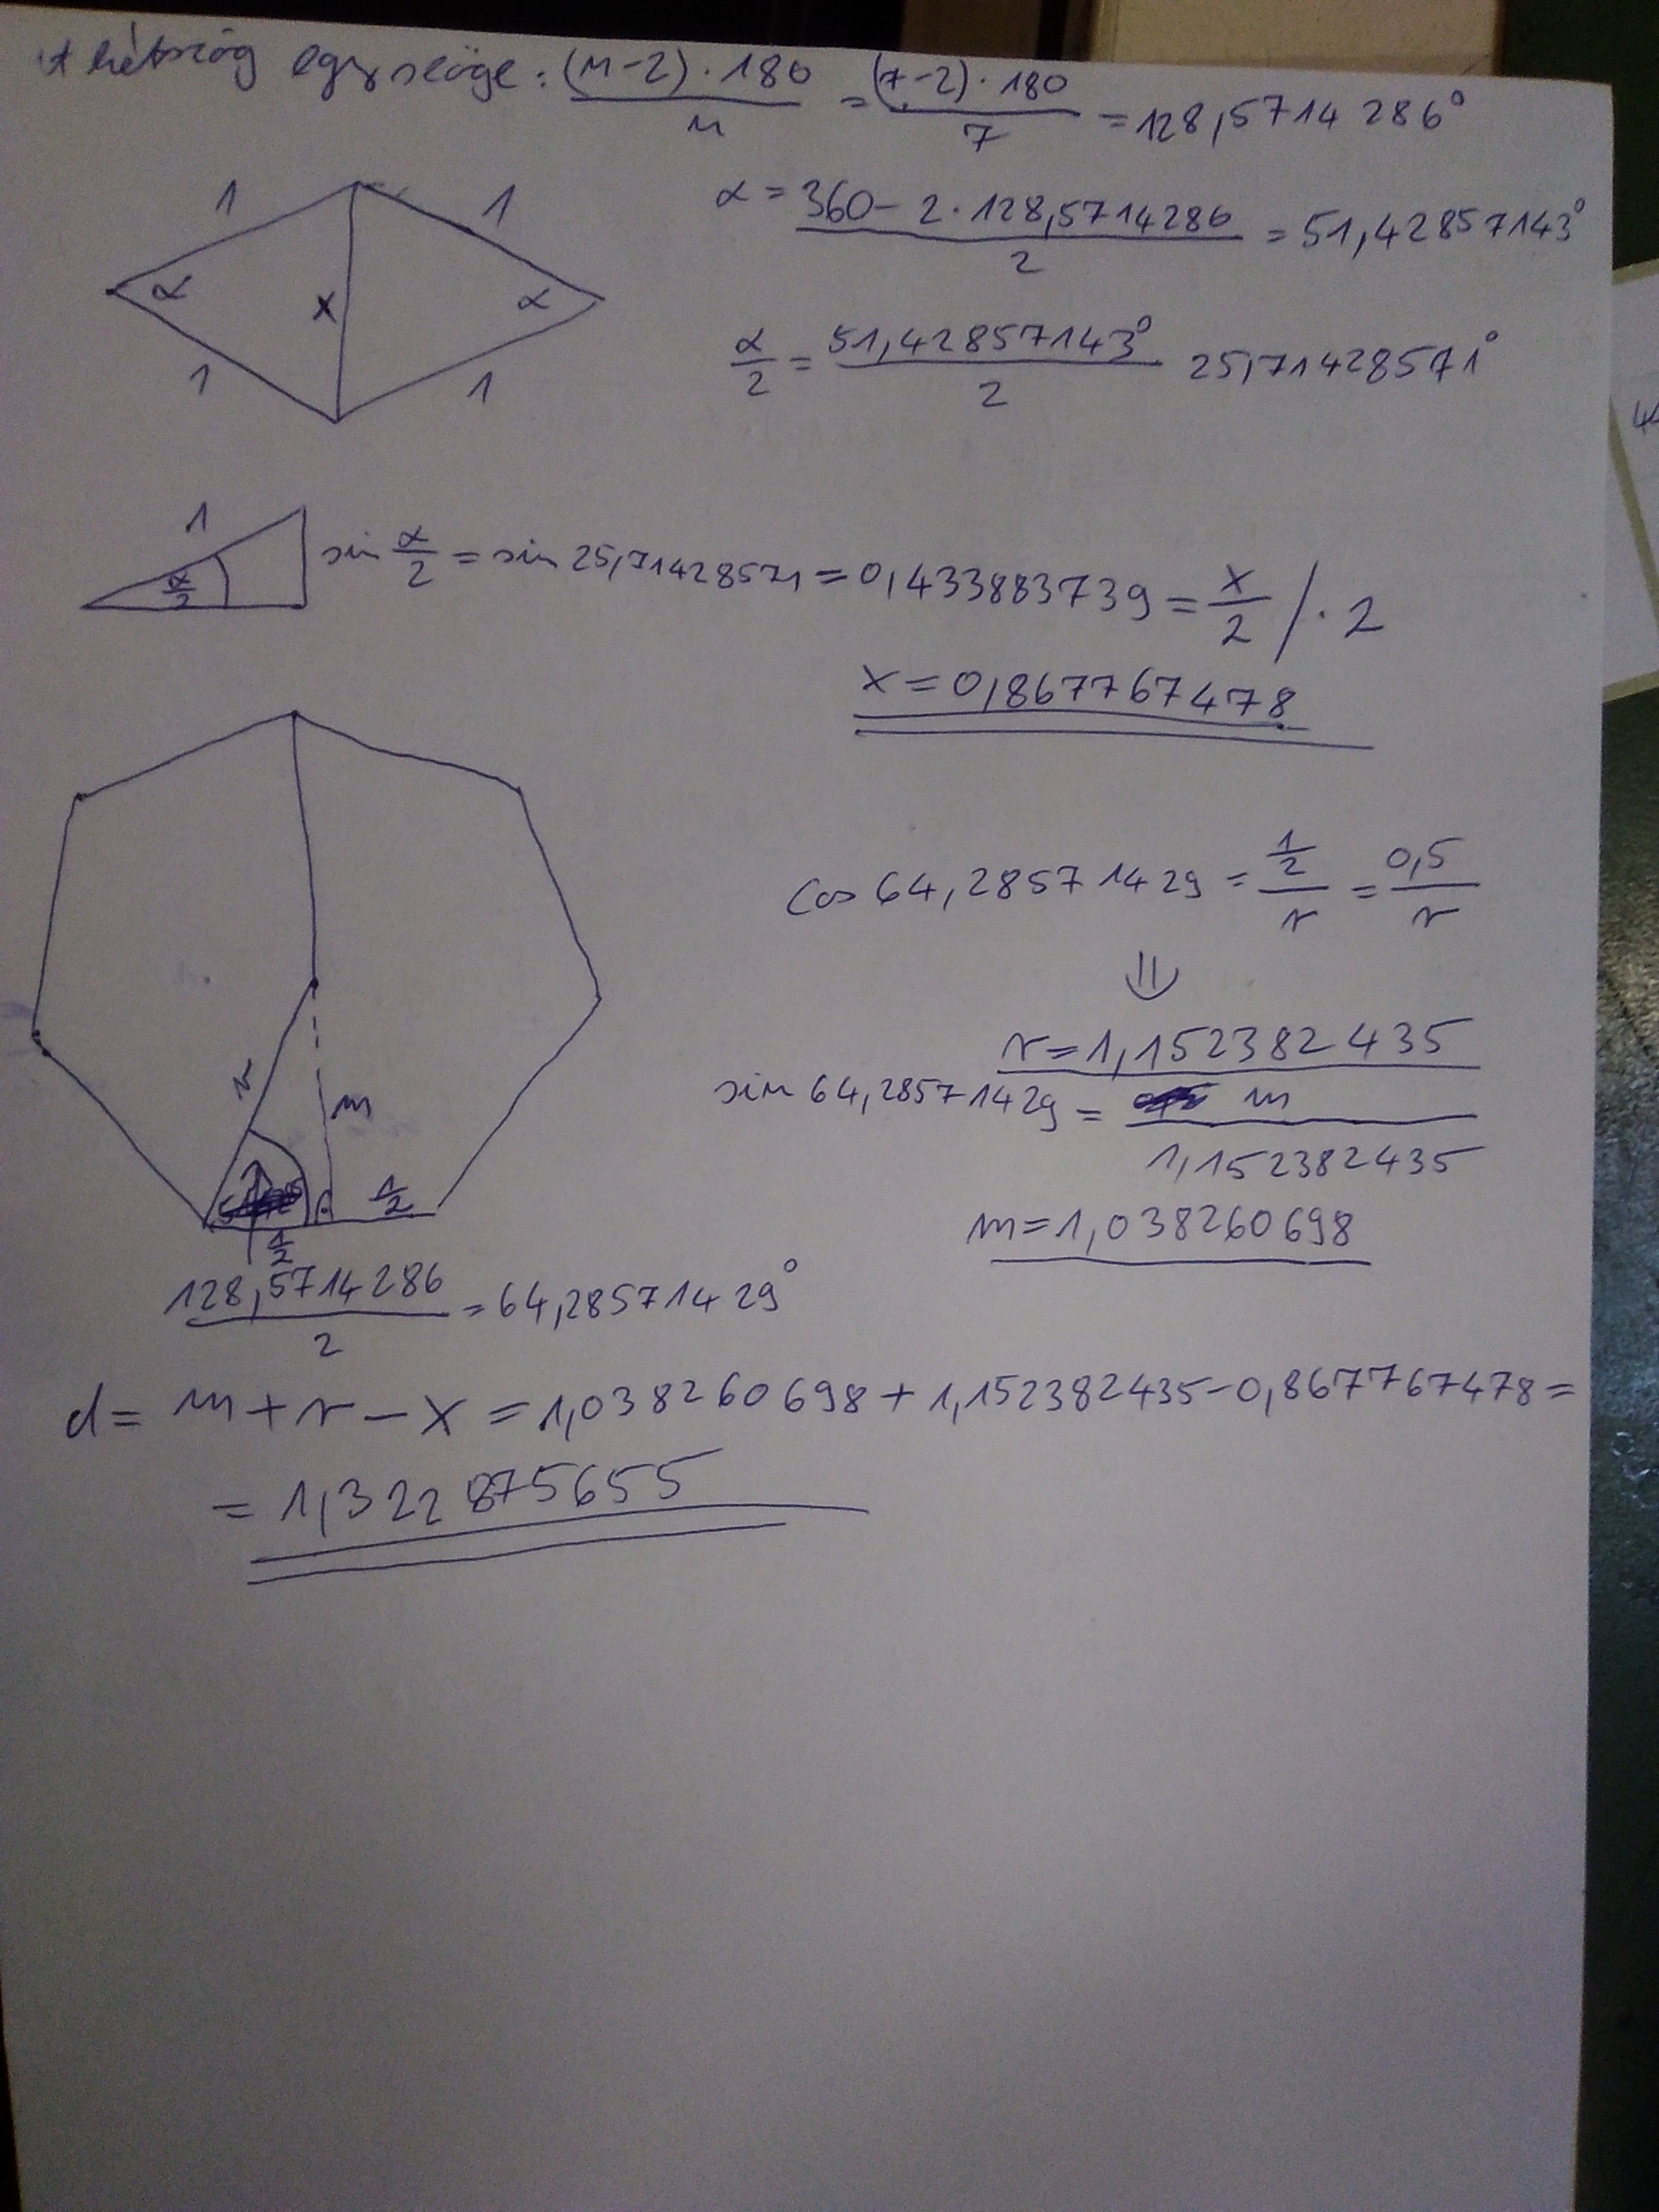 A hétszög egy szöge: (n-2)·180/n = (7-2)·180/7 = 128,5714286°
1 1
α = (360-2·128,5714286)/2 = 51,42857143°
α x α
α/2 = 51,42857143°/2 25,71428571°
1 1
1
α/2
sin α/2 = sin 25,71428571 = 0,433883739 = x/2 /·2
x = 0,867767478
cos 64,28571429 = (1/2)/r = 0,5/r
⇓
r = 1,152382435
r
m
sin 64,28571429 = m/1,152382435
1/2
1/2
m = 1,038260698
128,5714286/2 = 64,28571429°
d = m+r-x = 1,038260698+1,152382435-0,867767478 =
= 1,322875655